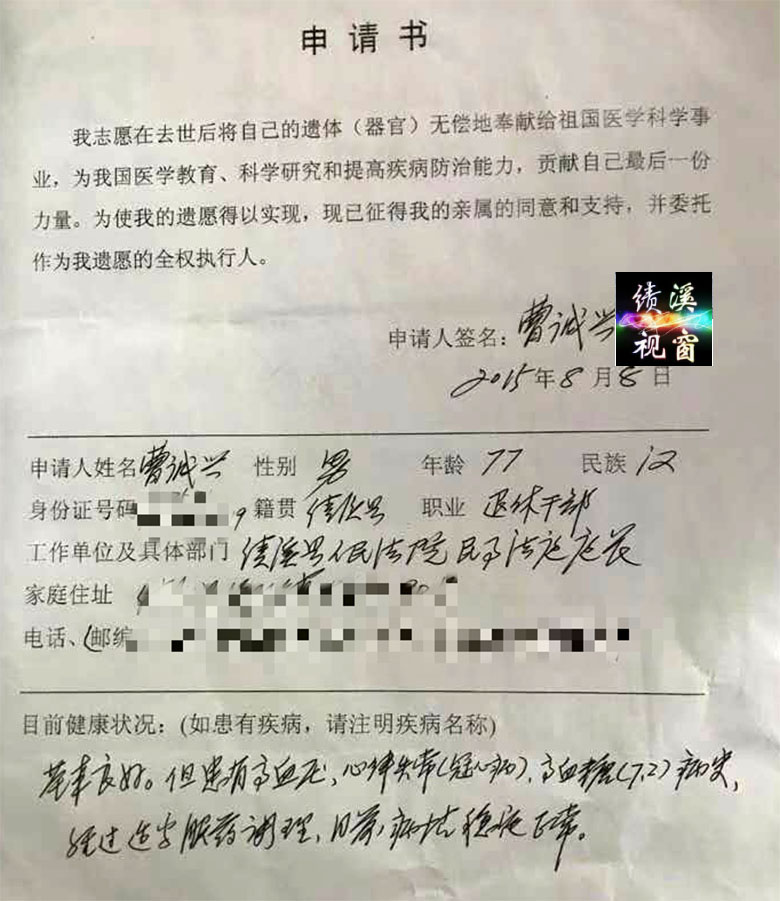 申请书
我志愿在去世后将自己的遗体（器官）无偿地奉献给祖国医学科学事
业，为我国医学教育、科学研究和提高疾病防治能力，贡献自己最后一份
力量。为使我的遗愿得以实现，现已征得我的亲属的同意和支持，并委托
作为我遗愿的全权执行人。
绩溪
视窗
申请人签名：曹诚兴
2015年8月8日
申请人姓名曹诚兴 性别 男 年龄 77 民族 汉
身份证号码 9 籍贯 绩溪县 职业 退休干部
工作单位及具体部门 绩溪县人民法院民事法庭庭长
家庭住址
电话、(邮编
目前健康状况：(如患有疾病，请注明疾病名称)
基本良好。但患有高血压，心律失常(冠心病)，高血糖(7.2)病史，
经过遵守服药调理，目前病情稳定正常。